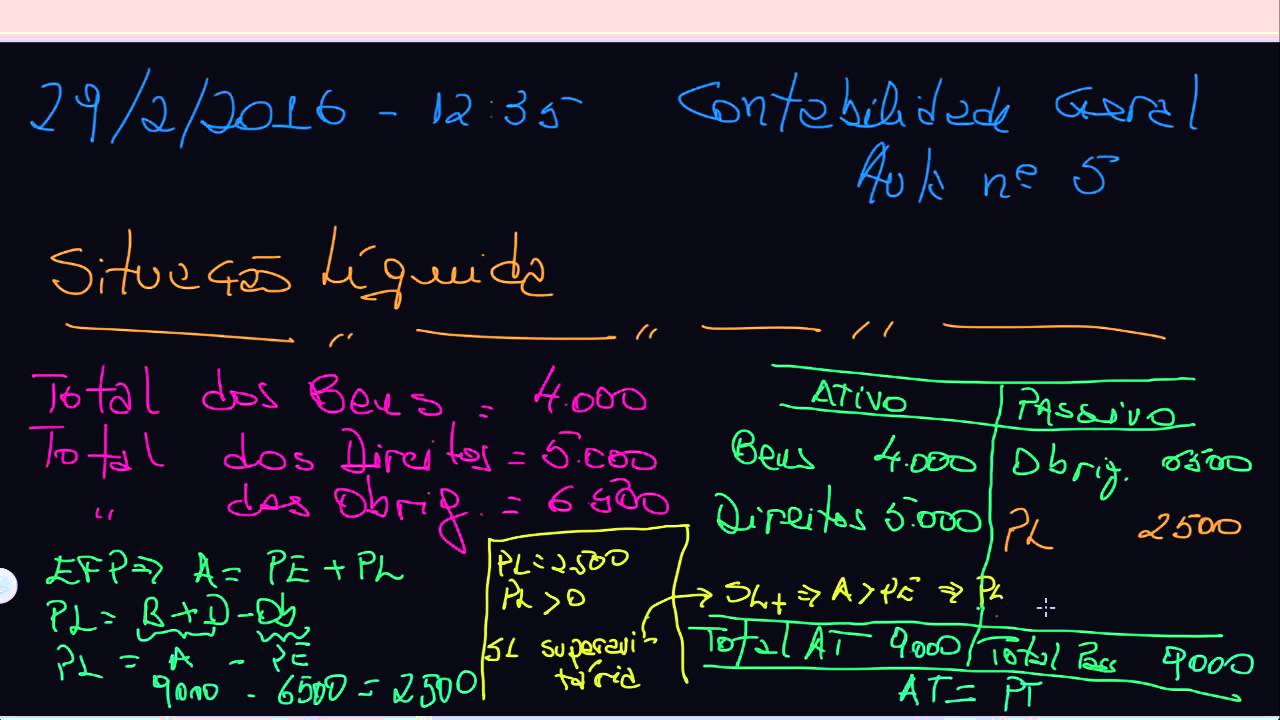 29/2/2016 - 12:35
Contabilidade Geral
Aula nº 5
Situação Líquida
Total dos Bens = 4.000
Total dos Direitos = 5.000
" das Obrig. = 6500
EFP ⇒ A = PE + PL
PL = B + D - Ob
PL = A - PE
9000 - 6500 = 2500
PL = 2500
PL > 0
SL superavi
tária
ATIVO PASSIVO
Bens 4.000 Obrig. 6500
Direitos 5.000 PL 2500
→ SL+ ⇒ A > PE ⇒ PL
Total AT 9000 Total Pass 9000
AT = PT